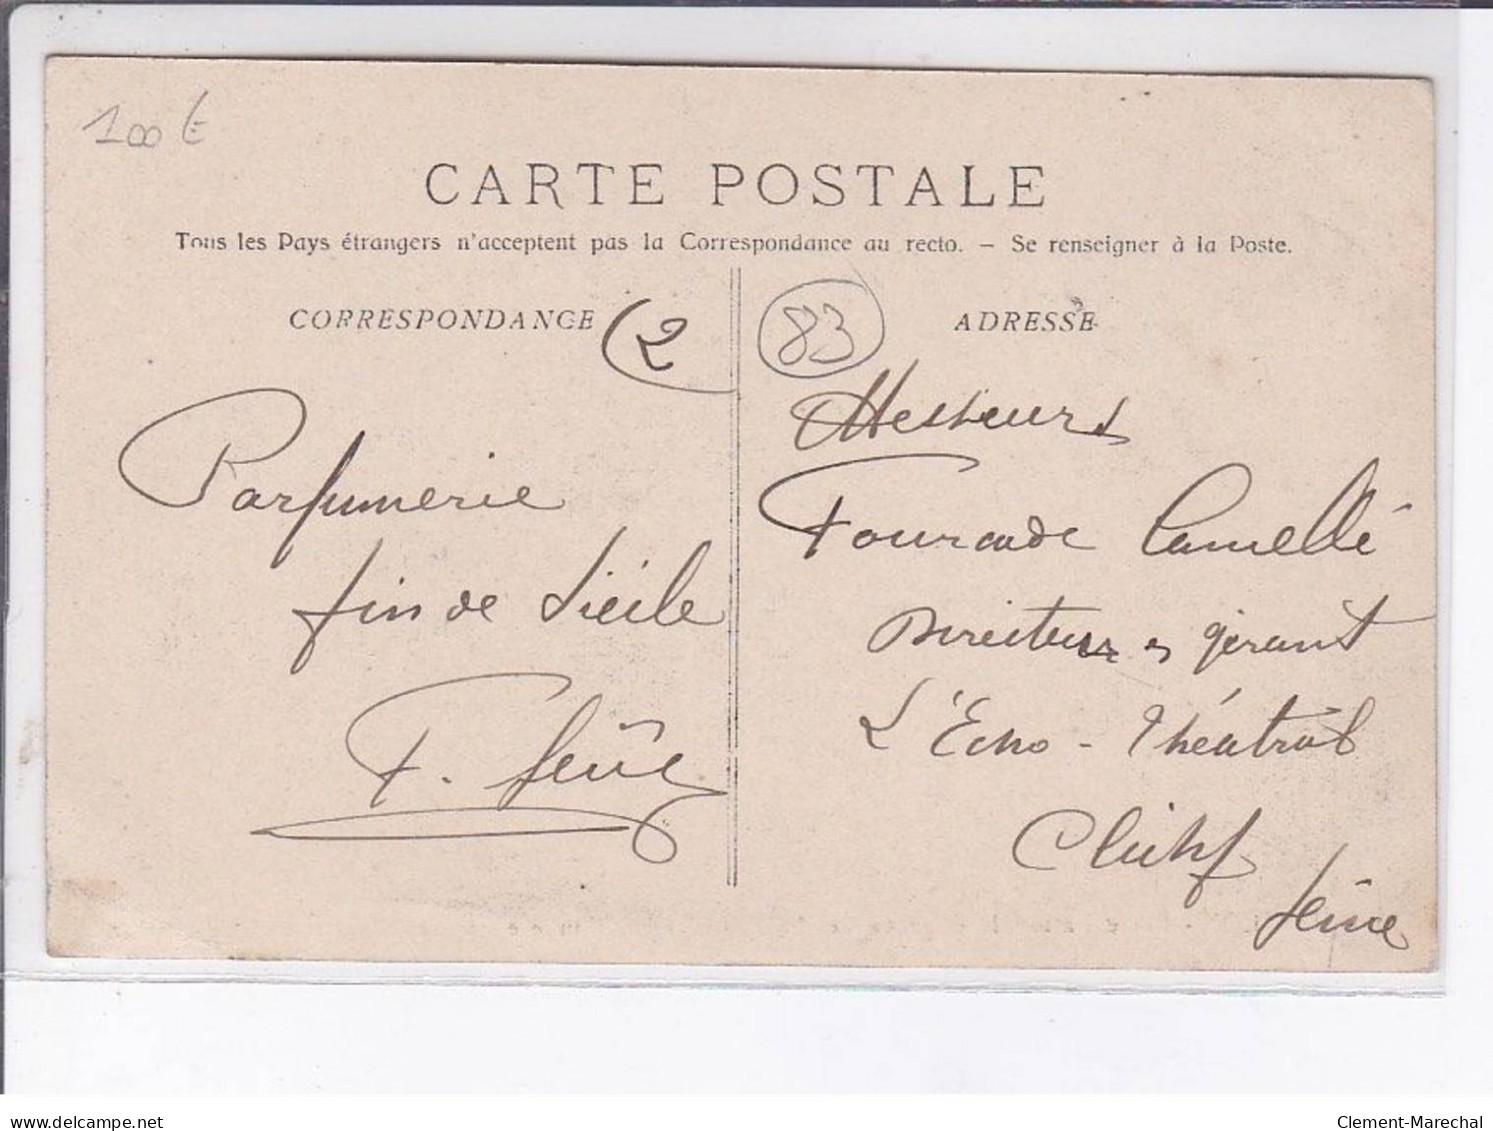 100 €
CARTE POSTALE
Tous les Pays étrangers n'acceptent pas la Correspondance au recto. — Se renseigner à la Poste.
CORRESPONDANCE
2
83
ADRESSE
Parfumerie
fin de Siècle
F.
Messieurs
Fourcade Camellé
Directeur gérant
L'Echo - Théatral
Clichy
Seine
delcampe.net
Clement-Marechal